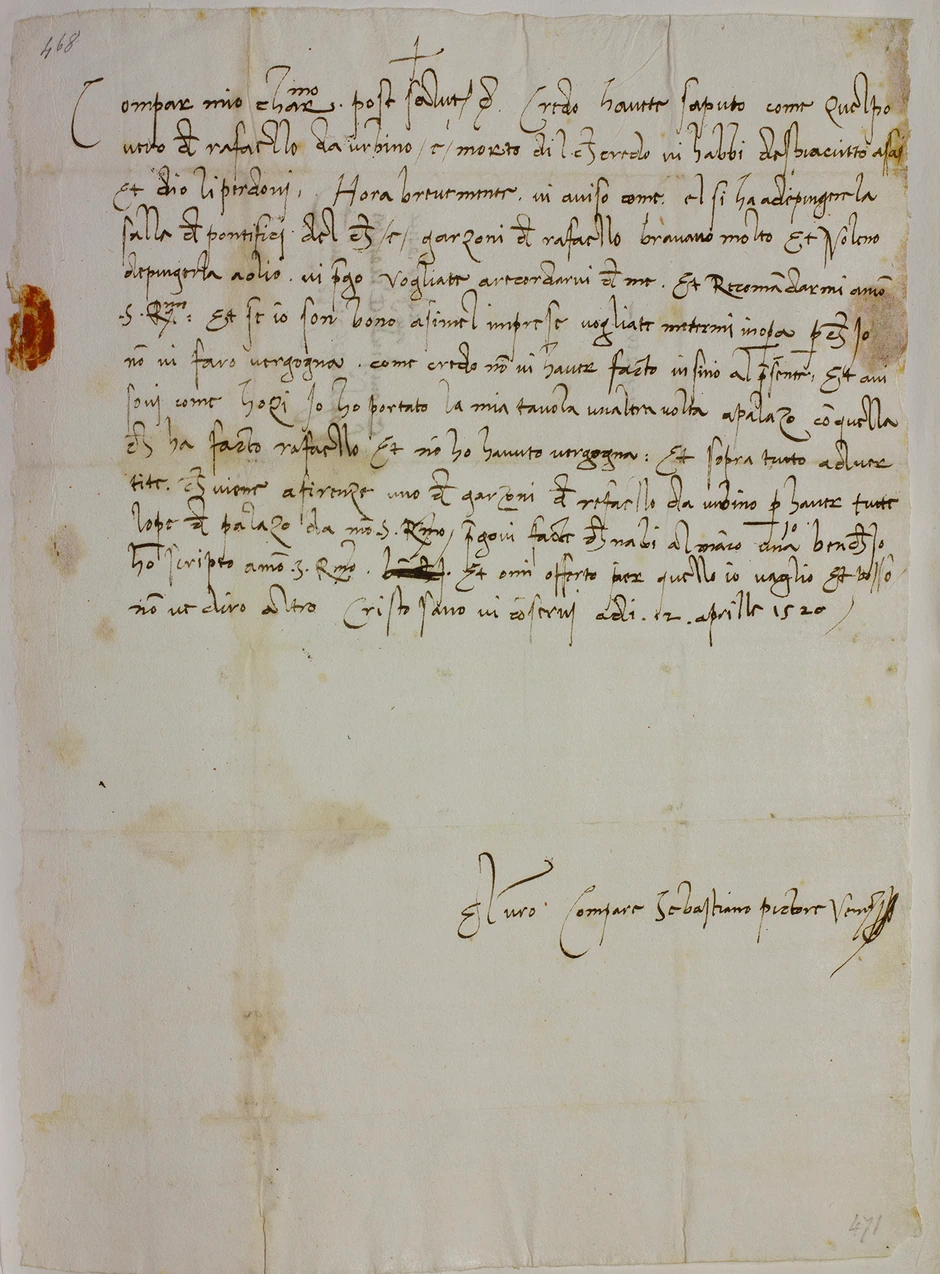 468
Compar mio char.mo post salute / Credo havete saputo come Quel po
vero de rafaello da urbino / e / morto di l che credo vi habbi despiaciutto asai
Et dio li perdoni. Hora brevemente. vi aviso come. el si ha a depingere la
salla de pontifici del che / e / garzoni de rafaello bravano molto Et Voleno
depingerla a olio. vi prego vogliate arecordarvi de me. Et Recomandarmi a mon.
.S. R.mo: Et se io son bono a simel imprese vogliate metermi in opera perche Io
nõ vi faro vergogna. come credo nõ vi haver facto in sino al presente. Et avi
sovi come hozi Io ho portato la mia tavola un altra volta a palazo cõ quella
che ha facto rafaello Et nõ ho havuto vergogna: Et sopra tutto adver
tite. che viene a firenze uno de garzoni de rafaello da urbino per haver tutte
lope de palazo da mõ. S. R.mo / pregovi fate che nabi al manco una ben che Io
ho scripto a mõ. S. R.mo. Et omi offerto per quello io vaglio Et posso
non ve diro altro Cristo sano vi conservi adi. 12. aprille 1520
El vro Compare Sebastiano pictore
471